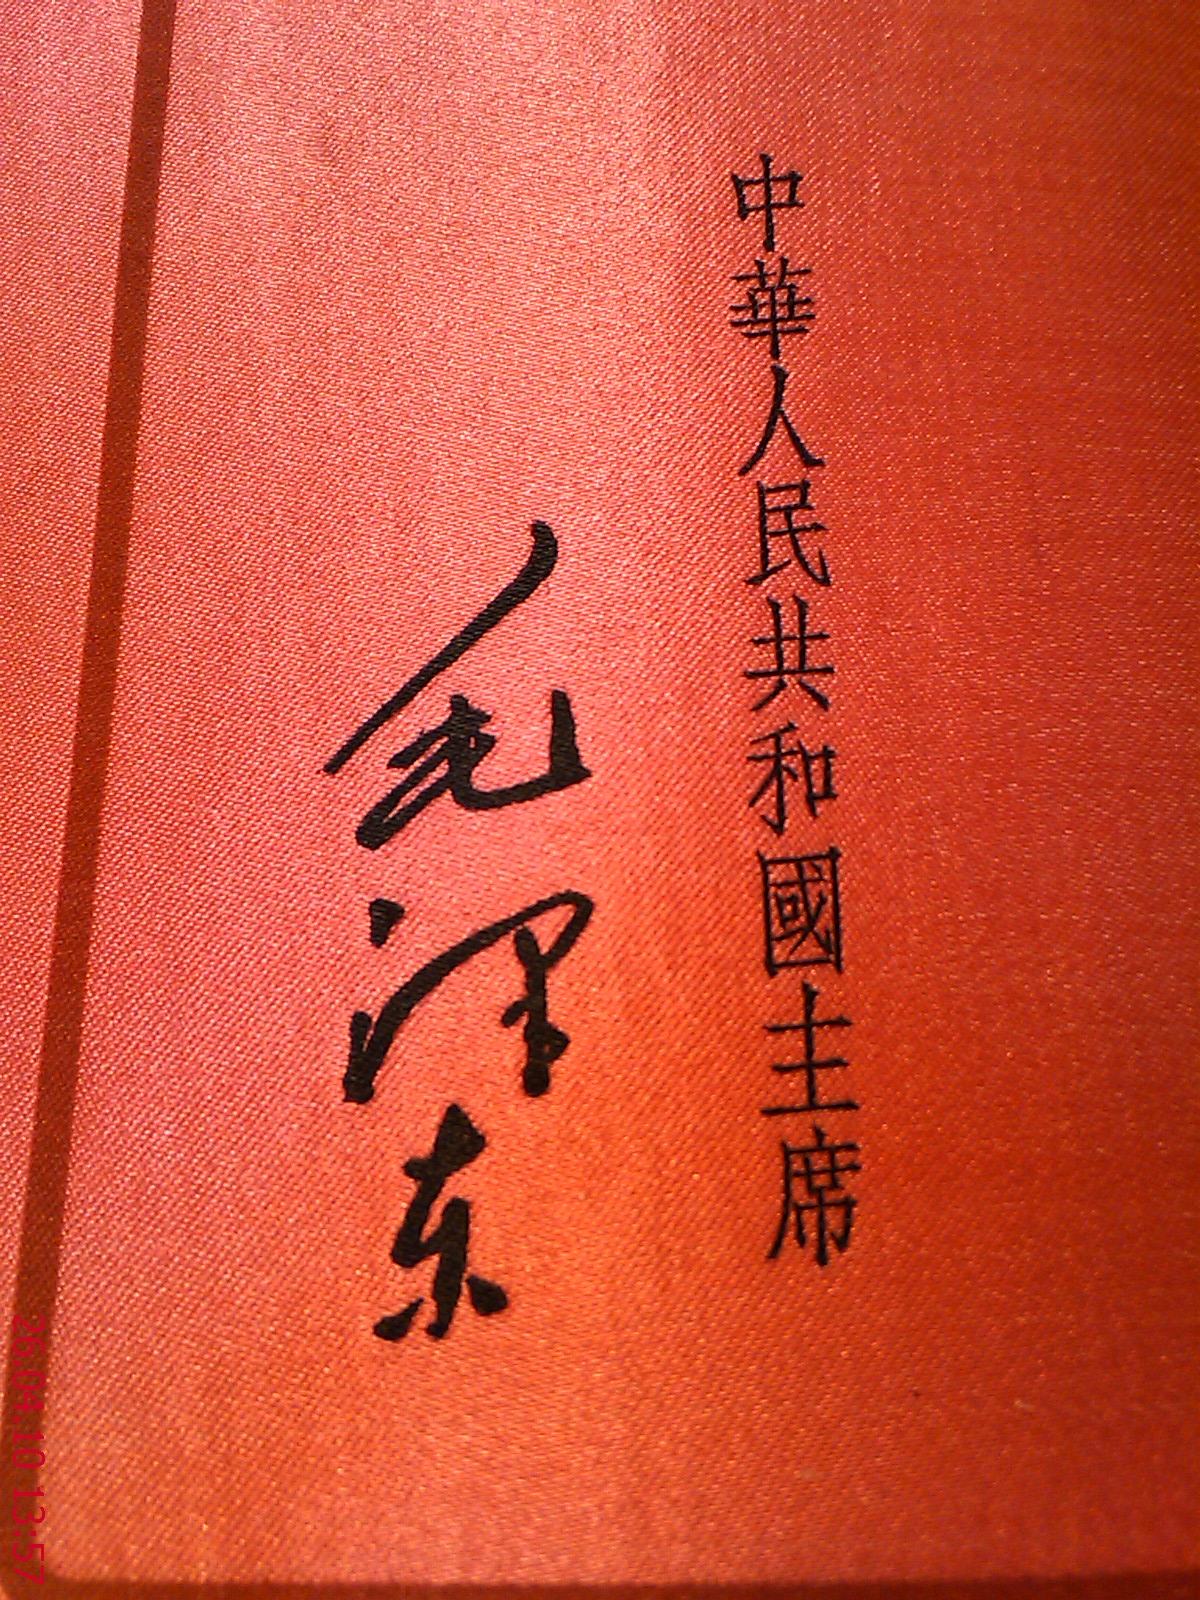 中華人民共和國主席
毛泽东
26.04.10 13:57